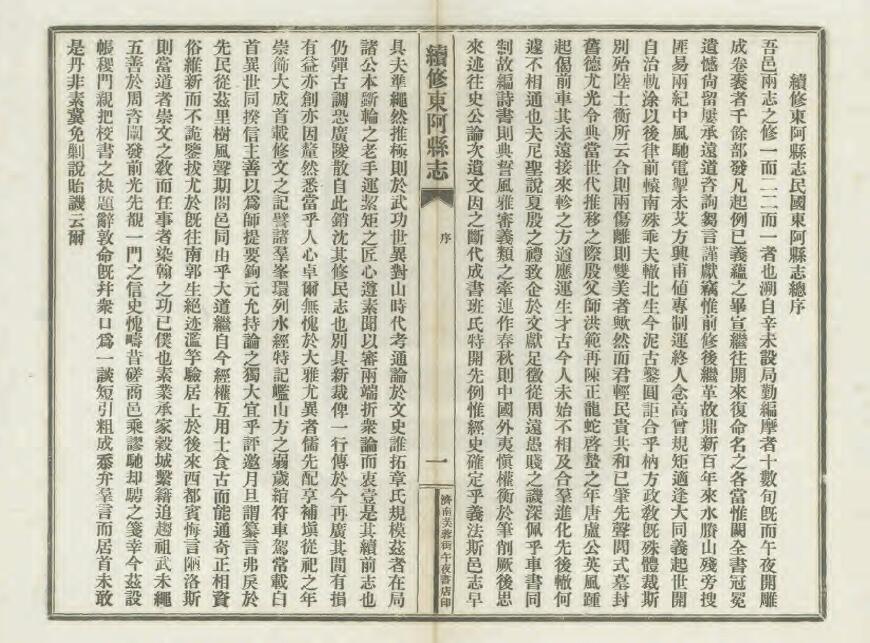 續修東阿縣志民國東阿縣志總序
吾邑兩志之修一而二二而一者也溯自辛未設局勤編摩者十數旬旣而午夜開雕
成卷袠者千餘部發凡起例已義蘊之畢宣繼往開來復命名之各當惟闕全書冠冕
遺憾尙留屢承遠道咨詢芻言謹獻竊惟前修後繼革故鼎新百年來水賸山殘旁搜
匪易兩紀中風馳電掣未艾方興甫値專制運終人念高曾規矩適逢大同義起世開
自治軌涂以後律前轅南殊乖夫轍北生今泥古鑿圓詎合乎枘方政敎旣殊體裁斯
別殆陸士衡所云合則兩傷離則雙美者歟然而君輕民貴共和已肇先聲閎式墓封
舊德尤光令典當世代推移之際殷父師洪範再陳正龍蛇啓蟄之年唐盧公英風踵
起偈前車其未遠接來軫之方遒應運生才古今人未始不相及合羣進化先後轍何
遽不相通也夫尼聖說夏殷之禮致企於文獻足徵從周遠愚賤之譏深佩乎車書同
制故編詩書則典誓風雅審義類之牽連作春秋則中國外夷愼權衡於筆削厥後思
來述往史公論次遺文因之斷代成書班氏特開先例惟經史確定乎義法斯邑志早
續修東阿縣志
序
一
濟南芙蓉街午夜書店印
具夫準繩然推極則於武功世異對山時代考通論於文史誰拓章氏規模茲者在局
諸公本斲輪之老手運絜矩之匠心遵素聞以審兩端折衆論而衷壹是其續前志也
仍彈古調恐廣陵散自此銷沈其修民志也別具新裁俾一行傳於今再廣其間有損
有益亦創亦因釐然悉當乎人心卓爾無愧於大雅尤異者儒先配享補塡從祀之年
崇飾大成首載修文之記譬諸羣峯環列水經特記巂山方之弱歲綰符車駕常載白
首異世同揆信主善以爲師提要鉤元允持論之獨大宜乎評邀月旦謂纂言弗戾於
先民從茲里樹風聲期闔邑同由乎大道繼自今經權互用士食古而能通奇正相資
俗維新而不詭鑒拔尤於旣往南郭生絕迹濫竽驗居上於後來西都賓悔言陋洛斯
則當道者崇文之敎而任事者染翰之功已僕也素業承家穀城繫籍追趨祖武未繩
五善於周咨闡發前光先覩一門之信史愧疇昔磋商邑乘謬馳却聘之箋幸今茲設
帳稷門親把校書之袂題辭敦命旣幷衆口爲一談短引粗成忝弁羣言而居首未敢
是丹非素冀免剿說貽譏云爾